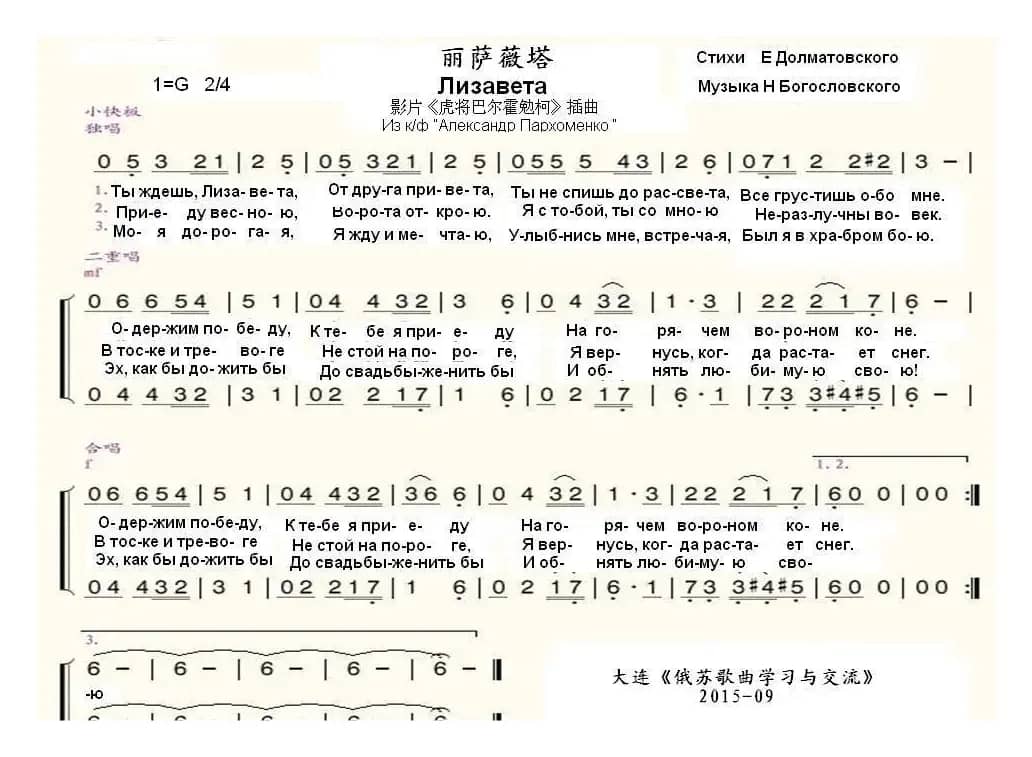 丽萨薇塔
Стихи Е Долматовского
1=G 2/4
Лизавета
Музыка Н Богословского
影片《虎将巴尔霍勉柯》插曲
Из к/ф "Александр Пархоменко"
小快板
独唱
0 5 3 21 | 2 5 | 05 321 | 2 5 | 055 5 43 | 2 6 | 071 2 2#2 | 3 – |
1. Ты ждешь, Лиза- ве- та, От дру-га при- ве-та, Ты не спишь до рас-све-та, Все грус-тишь о-бо мне.
2. При-е- ду вес- но-ю, Во-ро-та от- кро-ю. Я с то-бой, ты со мно-ю Не-раз-луч-ны во- век.
3. Мо-я до-ро- га-я, Я жду и ме- чта-ю, У-лыб-нись мне, встре-ча-я, Был я в хра-бром бо-ю.
二重唱
mf
0 6 6 54 | 5 1 | 04 4 32 | 3 6 | 0 4 32 | 1 · 3 | 22 2 1 7 | 6 – |
О- дер-жим по-бе- ду, К те- бе я при- е- ду На го- ря- чем во-ро-ном ко- не.
В тос-ке и тре- во-ге Не стой на по- ро- ге, Я вер- нусь, ког- да рас-та- ет снег.
Эх, как бы до-жить бы До свадьбы-же-нить бы И об- нять лю- би- му-ю сво-ю!
0 4 4 32 | 3 1 | 02 2 17 | 1 6 | 0 2 17 | 6 · 1 | 73 3#4#5 | 6 – |
合唱
f
1. 2.
06 654 | 5 1 | 04 432 | 36 6 | 0 4 32 | 1 · 3 | 22 2 1 7 | 60 0 | 00 :||
О- дер-жим по-бе-ду, К те-бе я при- е- ду На го- ря- чем во-ро-ном ко- не.
В тос-ке и тре-во-ге Не стой на по-ро- ге, Я вер- нусь, ког-да рас-та- ет снег.
Эх, как бы до-жить бы До свадьбы-же-нить бы И об- нять лю-би-му- ю сво-
04 432 | 3 1 | 02 217 | 1 6 | 0 2 17 | 6 · 1 | 73 3#4#5 | 60 0 | 00 :||
3.
6 – | 6 – | 6 – | 6 – | 6 – ||
大连《俄苏歌曲学习与交流》
-ю
2015-09
6 – | 6 – | 6 – | 6 – | 6 – ||